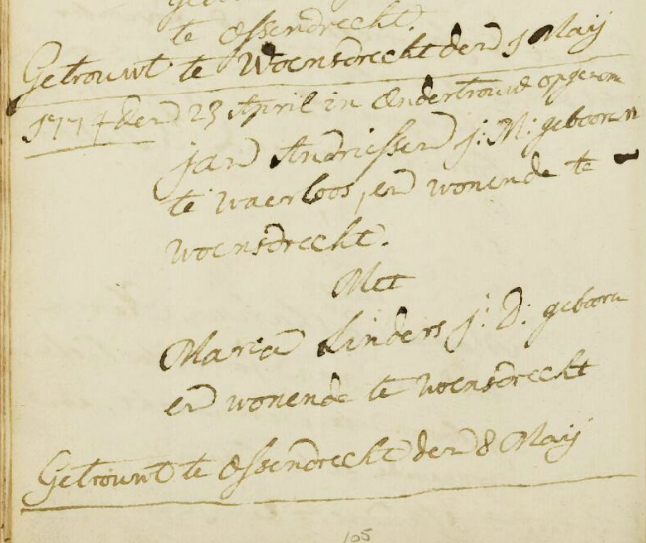 te Ossendrecht.
Getrouwt te Woensdrecht den 1 May
1774 den 23 April in Ondertrouwe opgenom
jan Andriessen j: M: gebooren
te waerloos, en wonende te
woensdrecht.
Met
Maria Linders j: D: geboorn
en wonende te woensdrecht
Getrouwt te Ossendrecht den 8 May
105